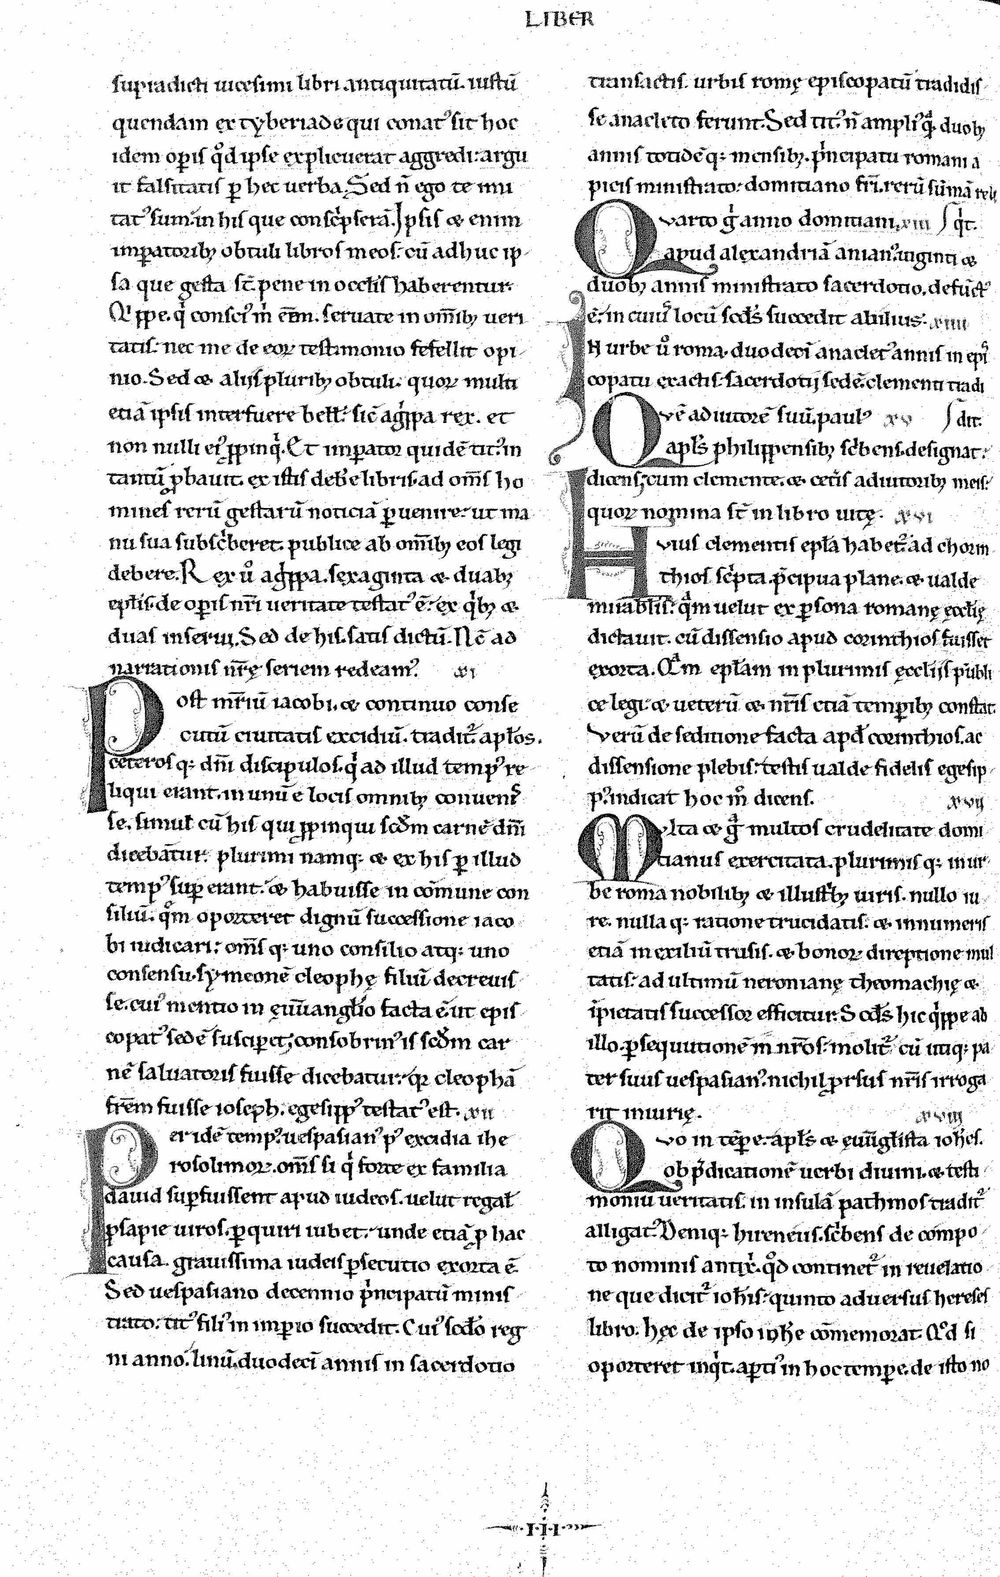 LIBER
supradicti uicesimi libri antiquitatū. iustū
quendam ex tyberiade qui conatꝰ sit hoc
idem opꝑis qd̓ ipse explicuerat aggredi: argu
it falsitatis ꝑ hec uerba. Sed n̄ ego te imi
tatꝰ sum. in his que conscͥpserā. Ipsis & enim
imꝑatoribꝫ obtuli libros meos: cū adhuc ip
sa que gesta st̄ pene in oclis haberentur.
Qͥppe. qͥ consciꝰ m̄ erā. seruate in om̄ibꝫ ueri
tatis: nec me de eoꝝ testimonio fefellit opi
nio. Sed & alijs pluribꝫ obtuli. quoꝝ multi
etiā ipsis interfuere bellꝭ: sic̄ agͥppa rex. et
non nulli eiꝰ ꝓpinqͥ. Et imꝑator quidē titꝰ. in
tantū ꝓbauit. ex istis deb̄e libris. ad om̄s ho
mines rerū gestarū noticiā ꝑuenire: ut ma
nu sua subscͥberet. publice ab om̄ibꝫ eos legi
debere. Rex ū agͥppa. sexaginta & duabꝫ
epl̄is. de oꝑis nr̄i ueritate testatꝰ ē: ex qͥbꝫ &
duas inserui. Sed de his. satis dictū. Nc̄ ad
narrationis nr̄ę seriem redeamꝰ. xi
Post mr̄iū iacobi. & continuo conse
cutū ciuitatis excidiū. tradit᷑ apl̄os.
ceterosqꝫ dn̄i discipulos. qͥ ad illud tempꝰ re
liqui erant. in unū e locis omnibꝫ conuenis
se. simul cū his qui ꝓpinqui scd̄m carnē dn̄i
dicebāntur: plurimi namqꝫ & ex his ꝑ illud
tempꝰ suꝑerant: & habuisse in cōmune con
siliū. qm̄ oporteret dignū successione iaco
bi iudicari: om̄s qꝫ uno consilio atqꝫ uno
consensu. symeonē cleophę filiū decreuis
se. cuiꝰ mentio in ęuuanglio facta ē. ut epis
copatꝰ sedē susciꝑet. consobrinꝰ is scd̄m car
nē saluatoris fuisse dicebatur: qꝛ cleophā
frēm fuisse ioseph. egesippꝰ testatꝰ est. xii
Per idē tempꝰ. uespasianꝰ pꝰ excidia ihe
rosolimoꝝ. om̄s si qͥ forte ex familia
dauid suꝑfuissent apud iudeos. uelut regal
ꝓsapie uiros. ꝑquiri iubet: unde etiā ꝓ hac
causa. grauissima iudeis ꝑsecutio exorta ē.
Sed uespasiano decennio pͥncipatū minis
trato: titꝰ filiꝰ in imꝑio succedit. Cuiꝰ scd̄o reg
ni anno. linū. duodecī annis in sacerdotio
transactis. urbis romę episcopatū tradidis
se anacleto ferunt. Sed titꝰ n̄ ampliꝰ qͣ duobꝫ
annis totidēqꝫ mensibꝫ. pͥncipatu romani a
picis ministrato: domitiano fr̄i. rerū sūmā reli
Quarto g̊ anno domitiani. xiii ſ qͥt.
apud alexandriā anianꝰ. uiginti &
duobꝫ annis ministrato sacerdotio. defūctꝰ
ē. in cuiꝰ locū scd̄s succedit abilius: xiiii
In urbe ū roma. duodecī anacletꝰ annis in epi
copatu exactis: sacerdotij sedē. clementi tradi
Quē adiutorē suū. paulꝰ xv ſ dit.
apl̄s philippensibꝫ scͥbens. designat:
dicens; cum clemente. & cetis adiutoribꝫ meis:
quoꝝ nomina st̄ in libro uitę. xvi
Huius clementis epl̄a habet᷑. ad chorin
thios scͥpta. pͥcipua plane. & ualde
mirabilis: qm̄ uelut ex ꝑsona romanę ęcclię
dictauit. cū dissensio apud corinthios fuisset
exorta. Qͣm epl̄am in plurimis ęccliis publi
ce legi. & ueterū & nr̄is etiā temꝑibꝫ constat.
Verū de seditione facta apd̓ corinthios. ac
dissensione plebis: testis ualde fidelis egesip
pꝰ. indicat hoc m̊ dicens. xvii
Multa & g̊ multos crudelitate domi
tianus exercitata. plurimis qꝫ in ur
be roma nobilibꝫ & illustͥbꝫ uiris. nullo iu
re. nulla qꝫ ratione trucidatis. & innumeris
etiā in exiliū trusis. & bonoꝝ direptione mul
tatis: ad ultimū neronianę theomachię &
īpietatis successor efficitur. Scd̄s hic qͥppe ab
illo. ꝑsequutionē in nr̄os. molit᷑. cū utiqꝫ pa
ter suus uespasianꝰ. nichil ꝓrsus nr̄is irroga
rit iniurię. xviii
Quo in tēꝑe. apl̄s & ęuūglista iohēs.
ob p̄dicationē uerbi diuini. & testi
moniū ueritatis. in insulā pathmos tradit᷑
alligatꝰ. Deniqꝫ hireneus. scͥbens de compo
to nominis antixͥ. qd̓ continet᷑ in reuelatio
ne que dicit᷑ ioh̄is: quinto aduersus hereses
libro. hęc de ipso ioh̄e cōmemorat. Qd̓ si
oporteret inqͥt. aꝑtiꝰ in hoc tempꝑe. de isto no
·I·I·I·